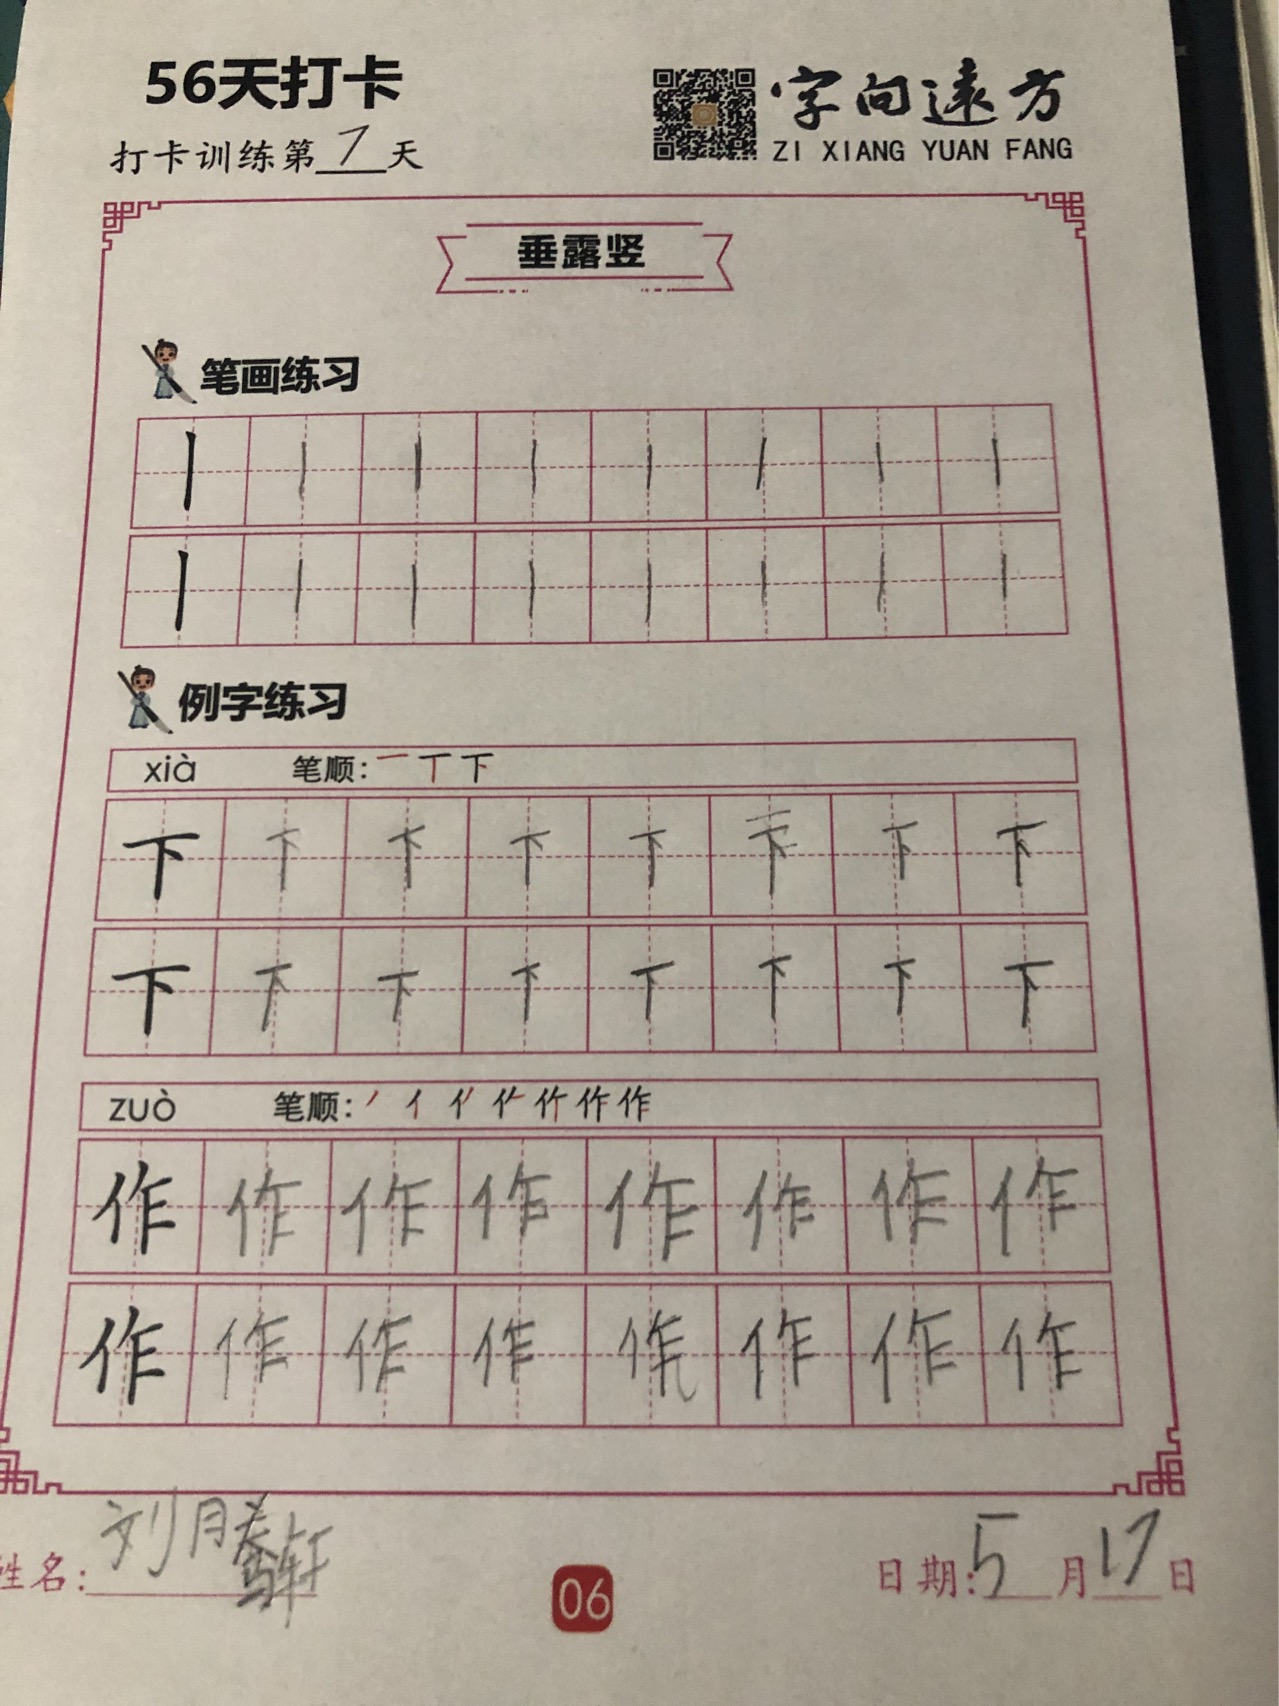 56天打卡
字向远方
打卡训练第7天
ZI XIANG YUAN FANG
垂露竖
笔画练习
丨丨丨丨丨丨丨丨
丨丨丨丨丨丨丨丨
例字练习
xià 笔顺: 一丅下
下下下下下下下下
下下下下下下下下
zuò 笔顺: 丿亻作
作作作作作作作作
作作作作作作作作
姓名: 刘腾轩
06
日期: 5月17日